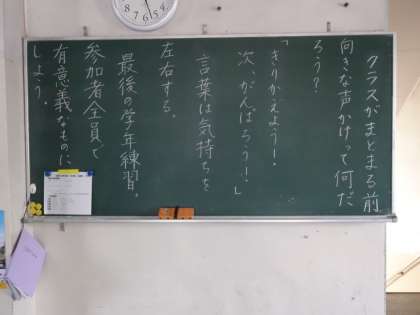 クラスがまとまる前
向きな声かけって何だ
ろう?
「きりかえよう!
次、がんばろう!」
言葉は気持ちを
左右する。
最後の学年練習。
参加者全員で
有意義なものに
しよう。